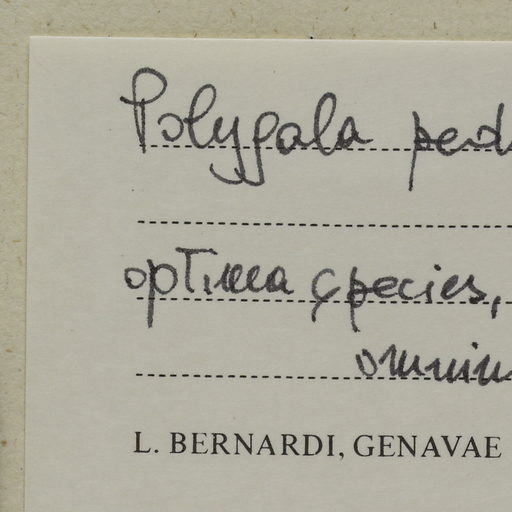 Polygala ped
optima species,
omnim
L. BERNARDI, GENAVAE